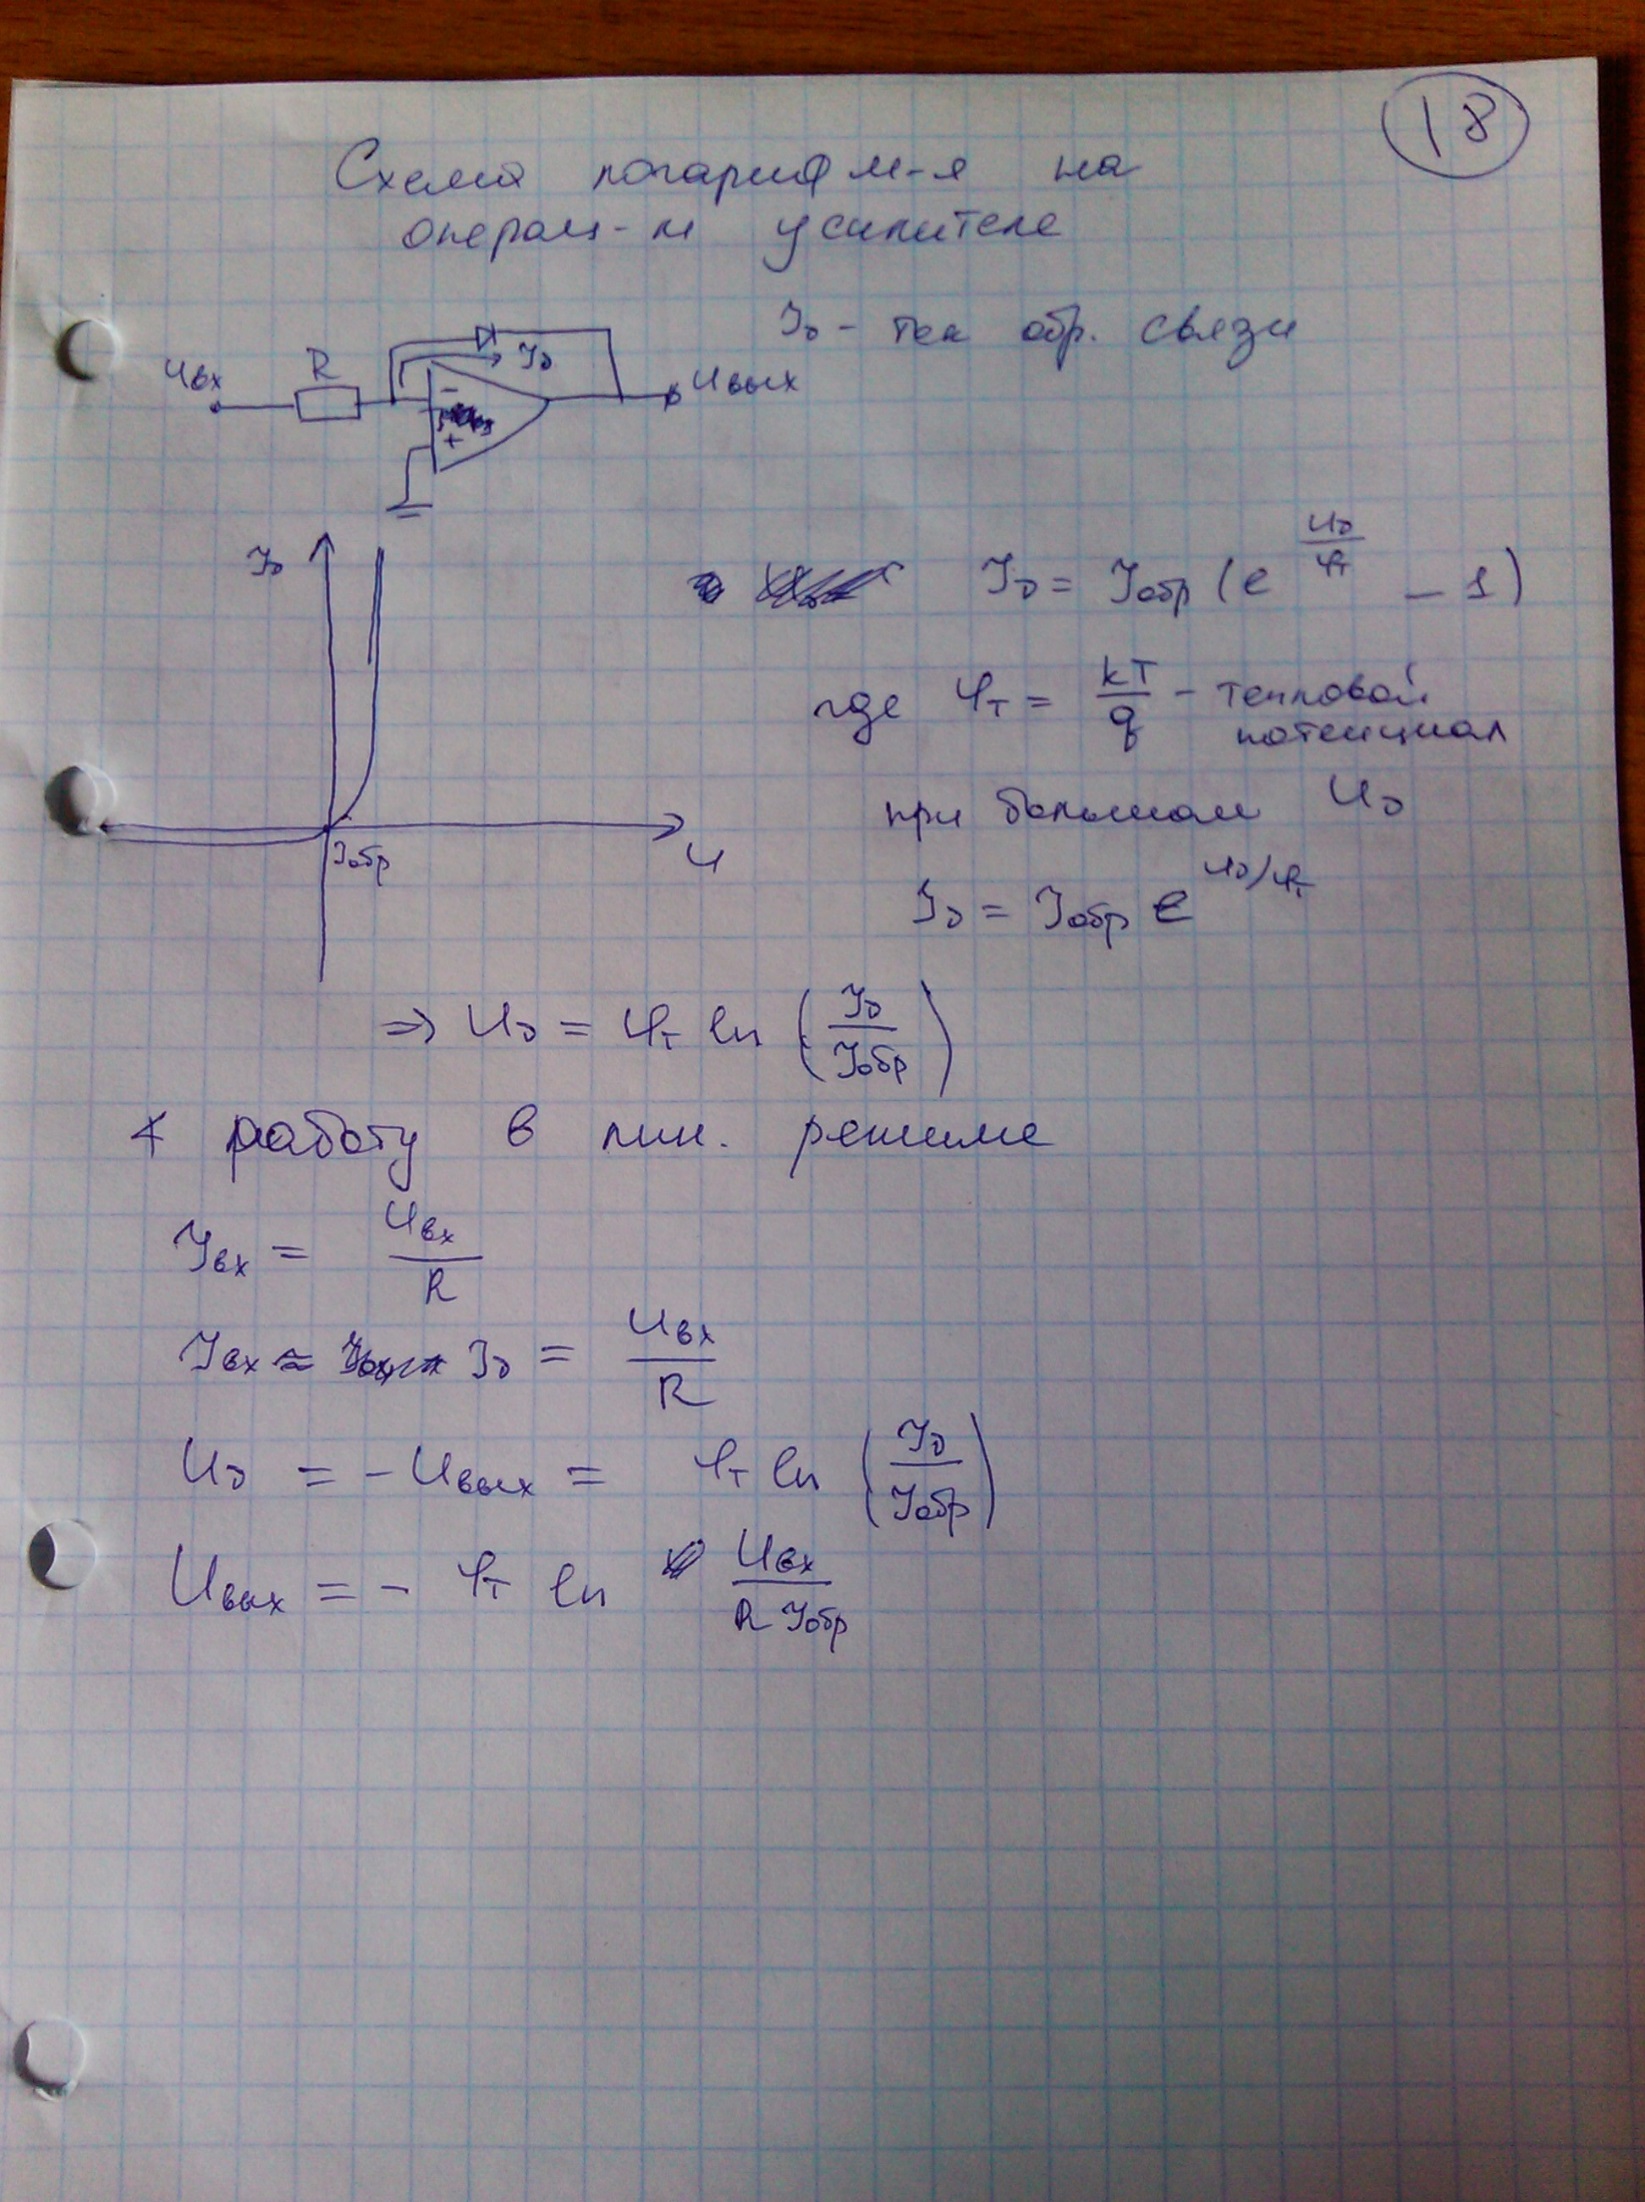 18
Схема логарифм-я на
операц-м усилителе
Uвх R Iд Uвых
- +
Iд - ток обр. связи
Iд
U
Iобр
Iд = Iобр (e^(Uд/φт) - 1)
где φт = kT/q - тепловой
потенциал
при большом Uд
Iд = Iобр e^(Uд/φт)
⇒ Uд = φт ln (Iд/Iобр)
∢ работу в лин. режиме
Iвх = Uвх/R
Iвх ≈ Iд = Uвх/R
Uд = - Uвых = φт ln (Iд/Iобр)
Uвых = - φт ln Uвх/(R Iобр)